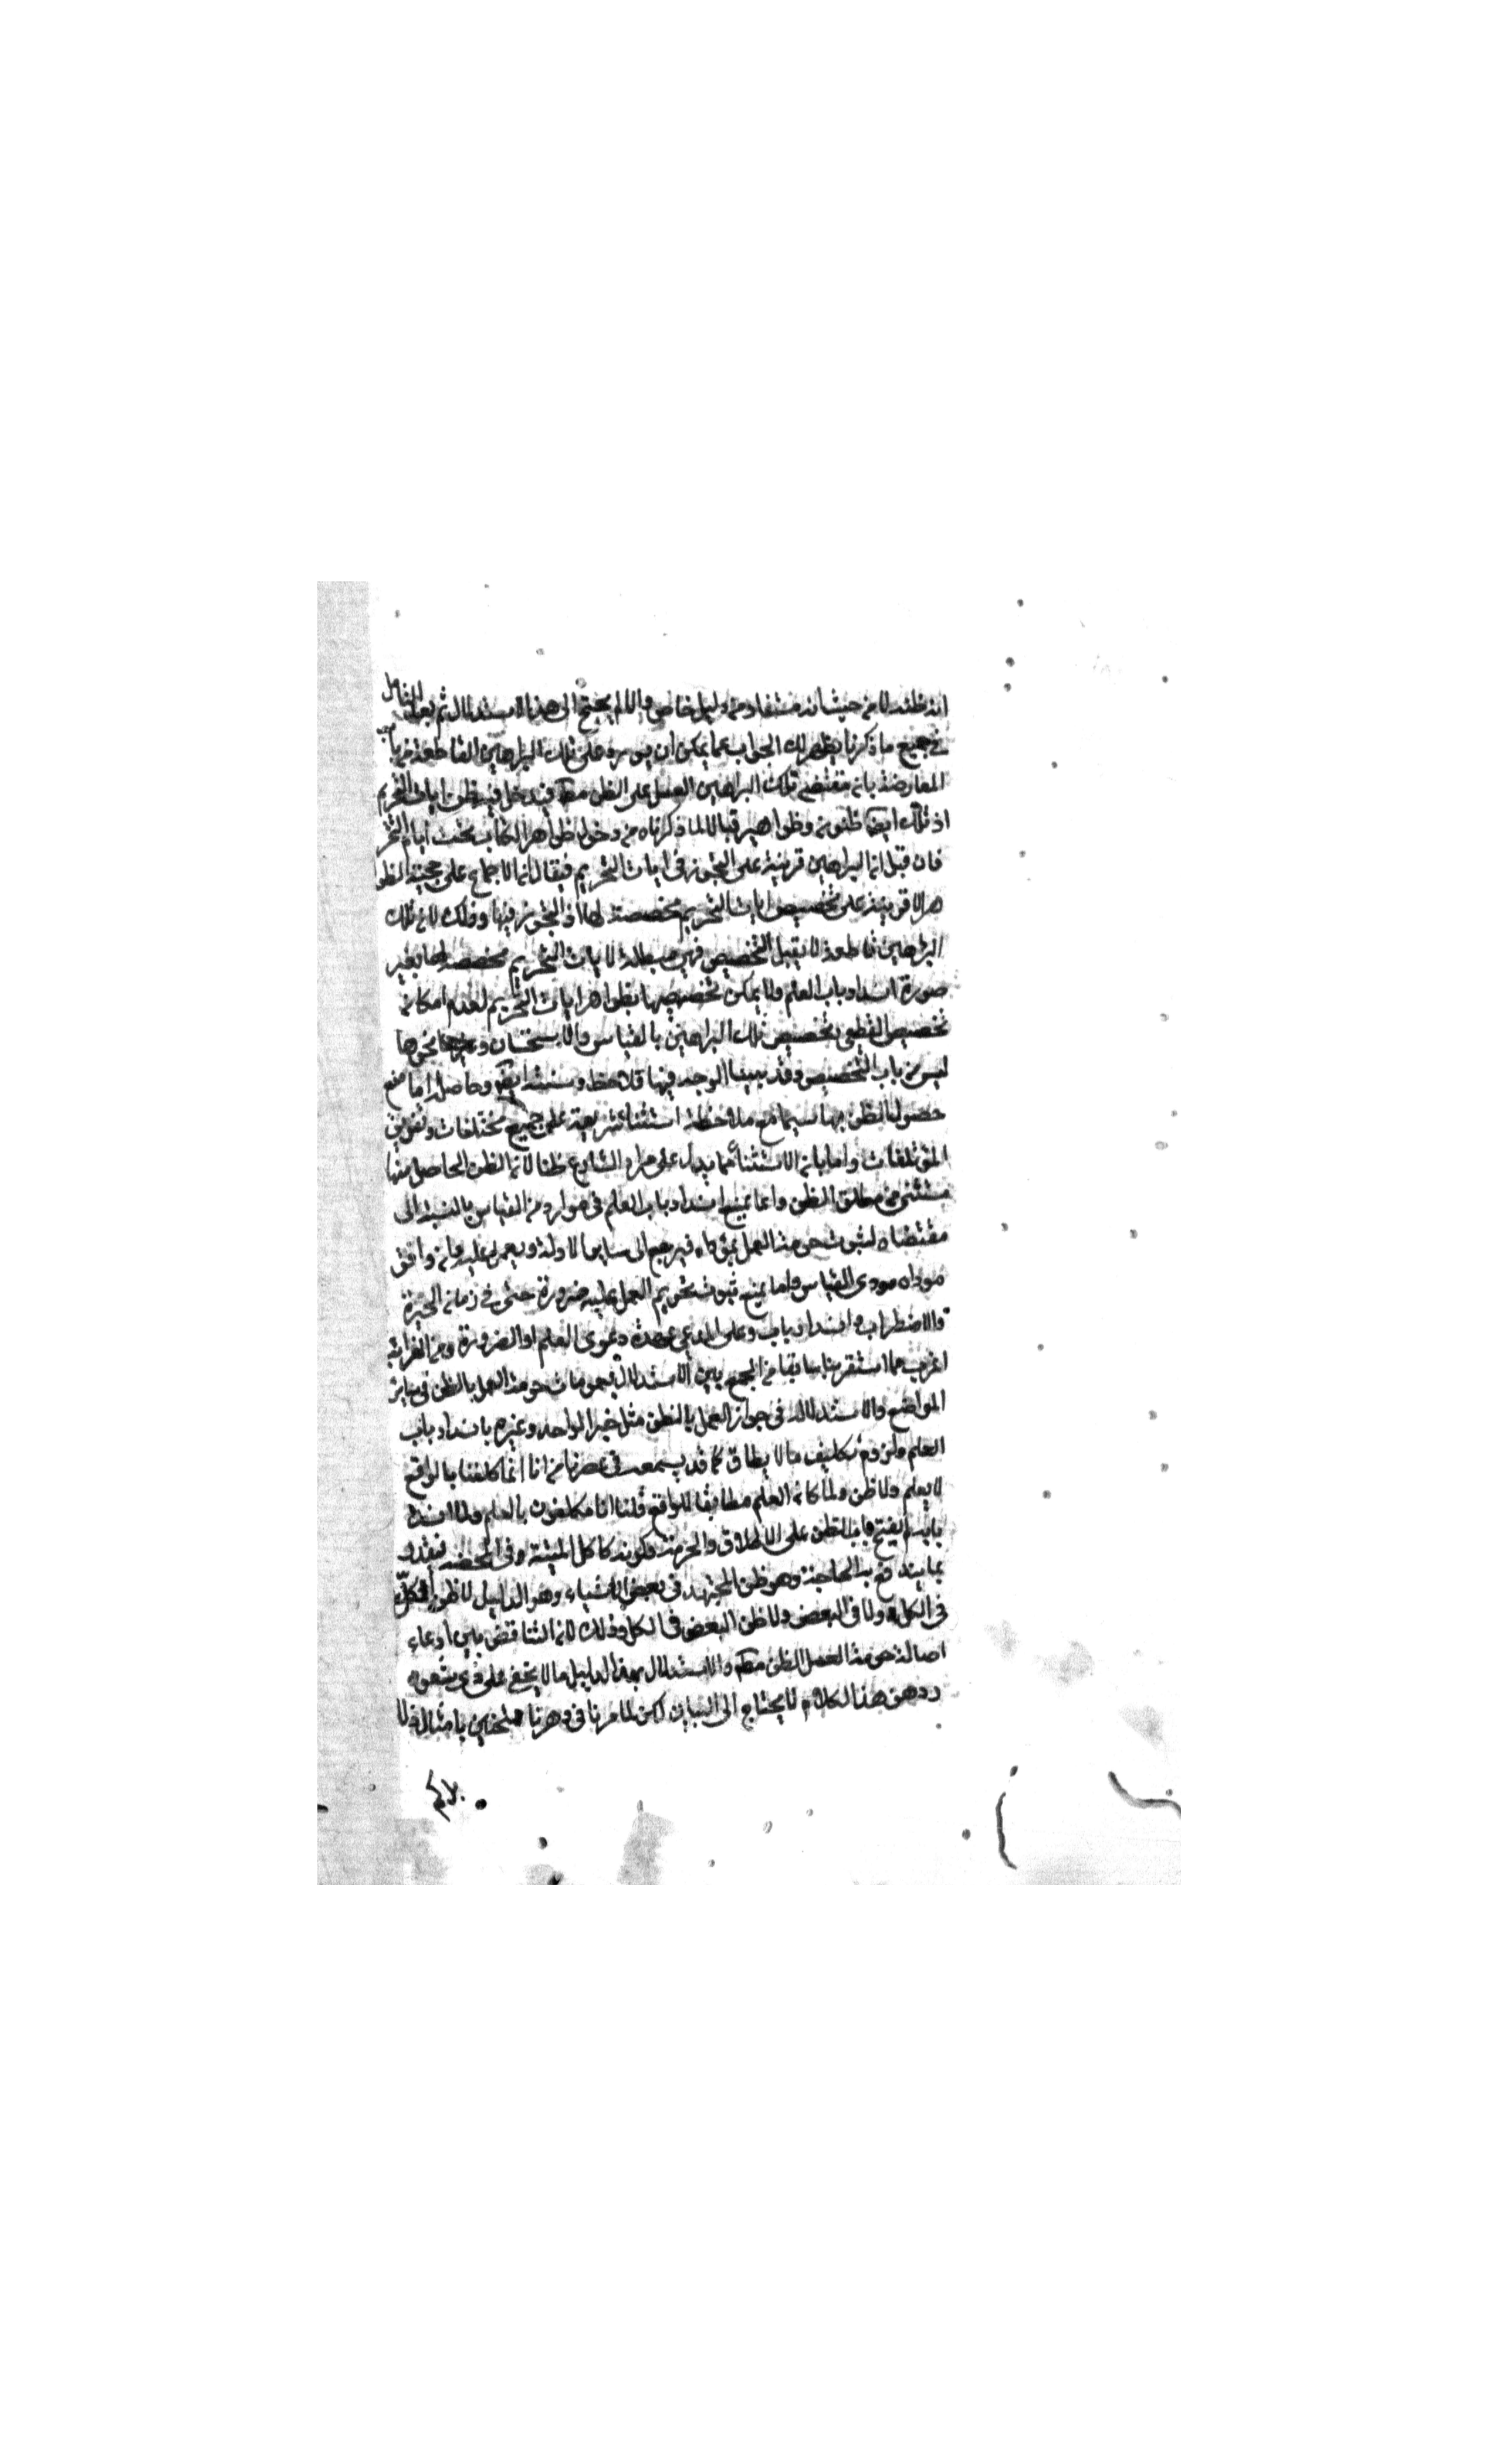 انه ظنه لا من حيث انه مستفاد من دليل خاص والا لم يحتج الى هذا الاستدلال ثم بعد التامل
في جميع ما ذكرنا يظهر لك الجواب عما يمكن ان يورد على تلك البراهين القاطعة من باب
المعارضة بان مقتضى تلك البراهين العمل على الظن مط فيدخل فيه ظن ايات التحريم
اذ تلك ايضا ظنون وظواهر قبالا لما ذكرناه من دخول ظواهر الكتاب تحت ايات التحر
فان قيل ان البراهين قرينة على التجوز في ايات التحريم فيقال ان الاجماع على حجية الظوا
هر لا قرينة على تخصيص ايات التحريم مخصصة لها او التجوز فيها وذلك لان تلك
البراهين قاطعة لا يقبل التخصيص فهي مبطلة لايات التحريم مخصصة لها بغير
صورة انسداد باب العلم ولا يمكن تخصيصها بظواهر ايات التحريم لعدم امكان
تخصيص القطعي وتخصيص تلك البراهين بالقياس والاستحسان ونحوها
ليس من باب التخصيص وقد بينا الوجه فيها فلاحظ وحاصله اما منع
حصول الظن بها سيما مع ملاحظة استثناء الشريعة على جميع مختلفات وتفريق
المؤتلفات واما بان الاستثناء مما يدل على مراد الشارع ظنا لان الظن الحاصل منها
مستثنى من مطلق الظن واما بمنع انسداد باب العلم في موارد من القياس بالنسبة الى
مقتضاه لثبوت حرمة العمل بمؤداه فيرجع الى ساير الادلة ويعمل عليه وان وافق
موداه مودى القياس واما بمنع ثبوت تحريم العمل عليه ضرورة حتى في زمان الحيرة
والاضطراب وانسداد باب وعلى المدعي عهدة دعوى العلم او الضرورة ومن الغرائب
اغرب مما استقربنا سابقا من الجمع بين الاستدلال بعمومات حرمة العمل بالظن في ساير
المواضع والاستدلال في جواز العمل بالظن مثل خبر الواحد وغيره بانسداد باب
العلم ولزوم تكليف ما لا يطاق كما قد يسمع في عصرنا من انا انما كلفنا بالواقع
لا بعلم ولا ظن ولما كان العلم مطابقا للواقع قلنا انا مكلفون بالعلم ولما انسد
بابه لم يفتح باب الظن على الاطلاق والحرمة كاكل الميتة وفي المخمصة
بما يندفع به الحاجة وهو ظن المجتهد في بعض الاشياء وهو الدليل لا ظن الكل
في الكل ولا في البعض ولا ظن البعض في الكل وذلك لان التناقض بين ادعاء
اصالة حرمة العمل الظن مط والاستدلال بهذا الدليل ما لا يخفى على ذي شعور
ردهن هذا الكلام لا يحتاج الى البيان لكن لما مرنا في دهرنا ممتحنين بامثال